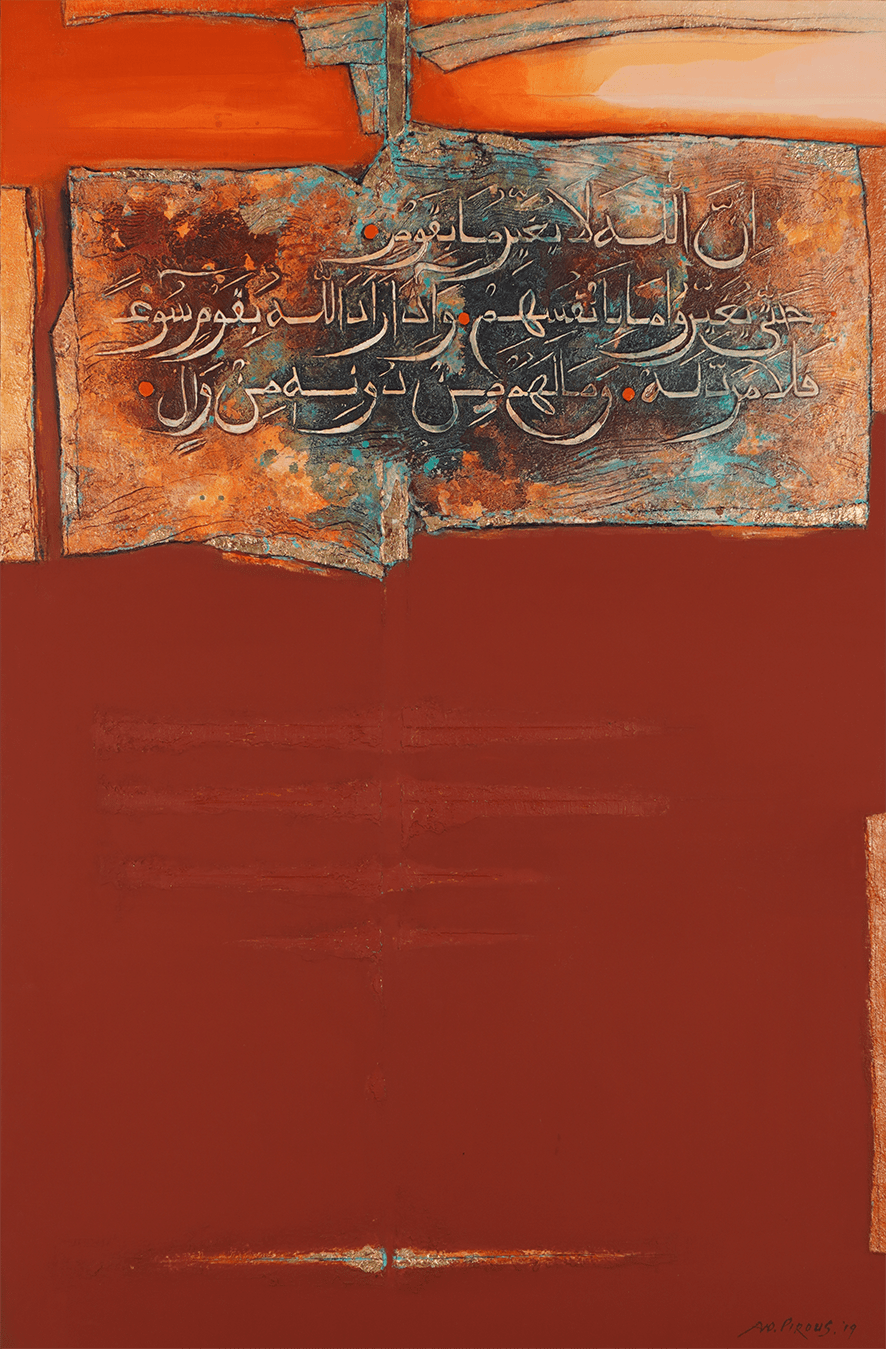 إنّ اللّه لا يغيّر ما بقوم
حتّى يغيّروا ما بأنفسهم وإذا أراد اللّه بقوم سوءا
فلا مردّ له وما لهم من دونه من وال
A.D. PIROUS. '19